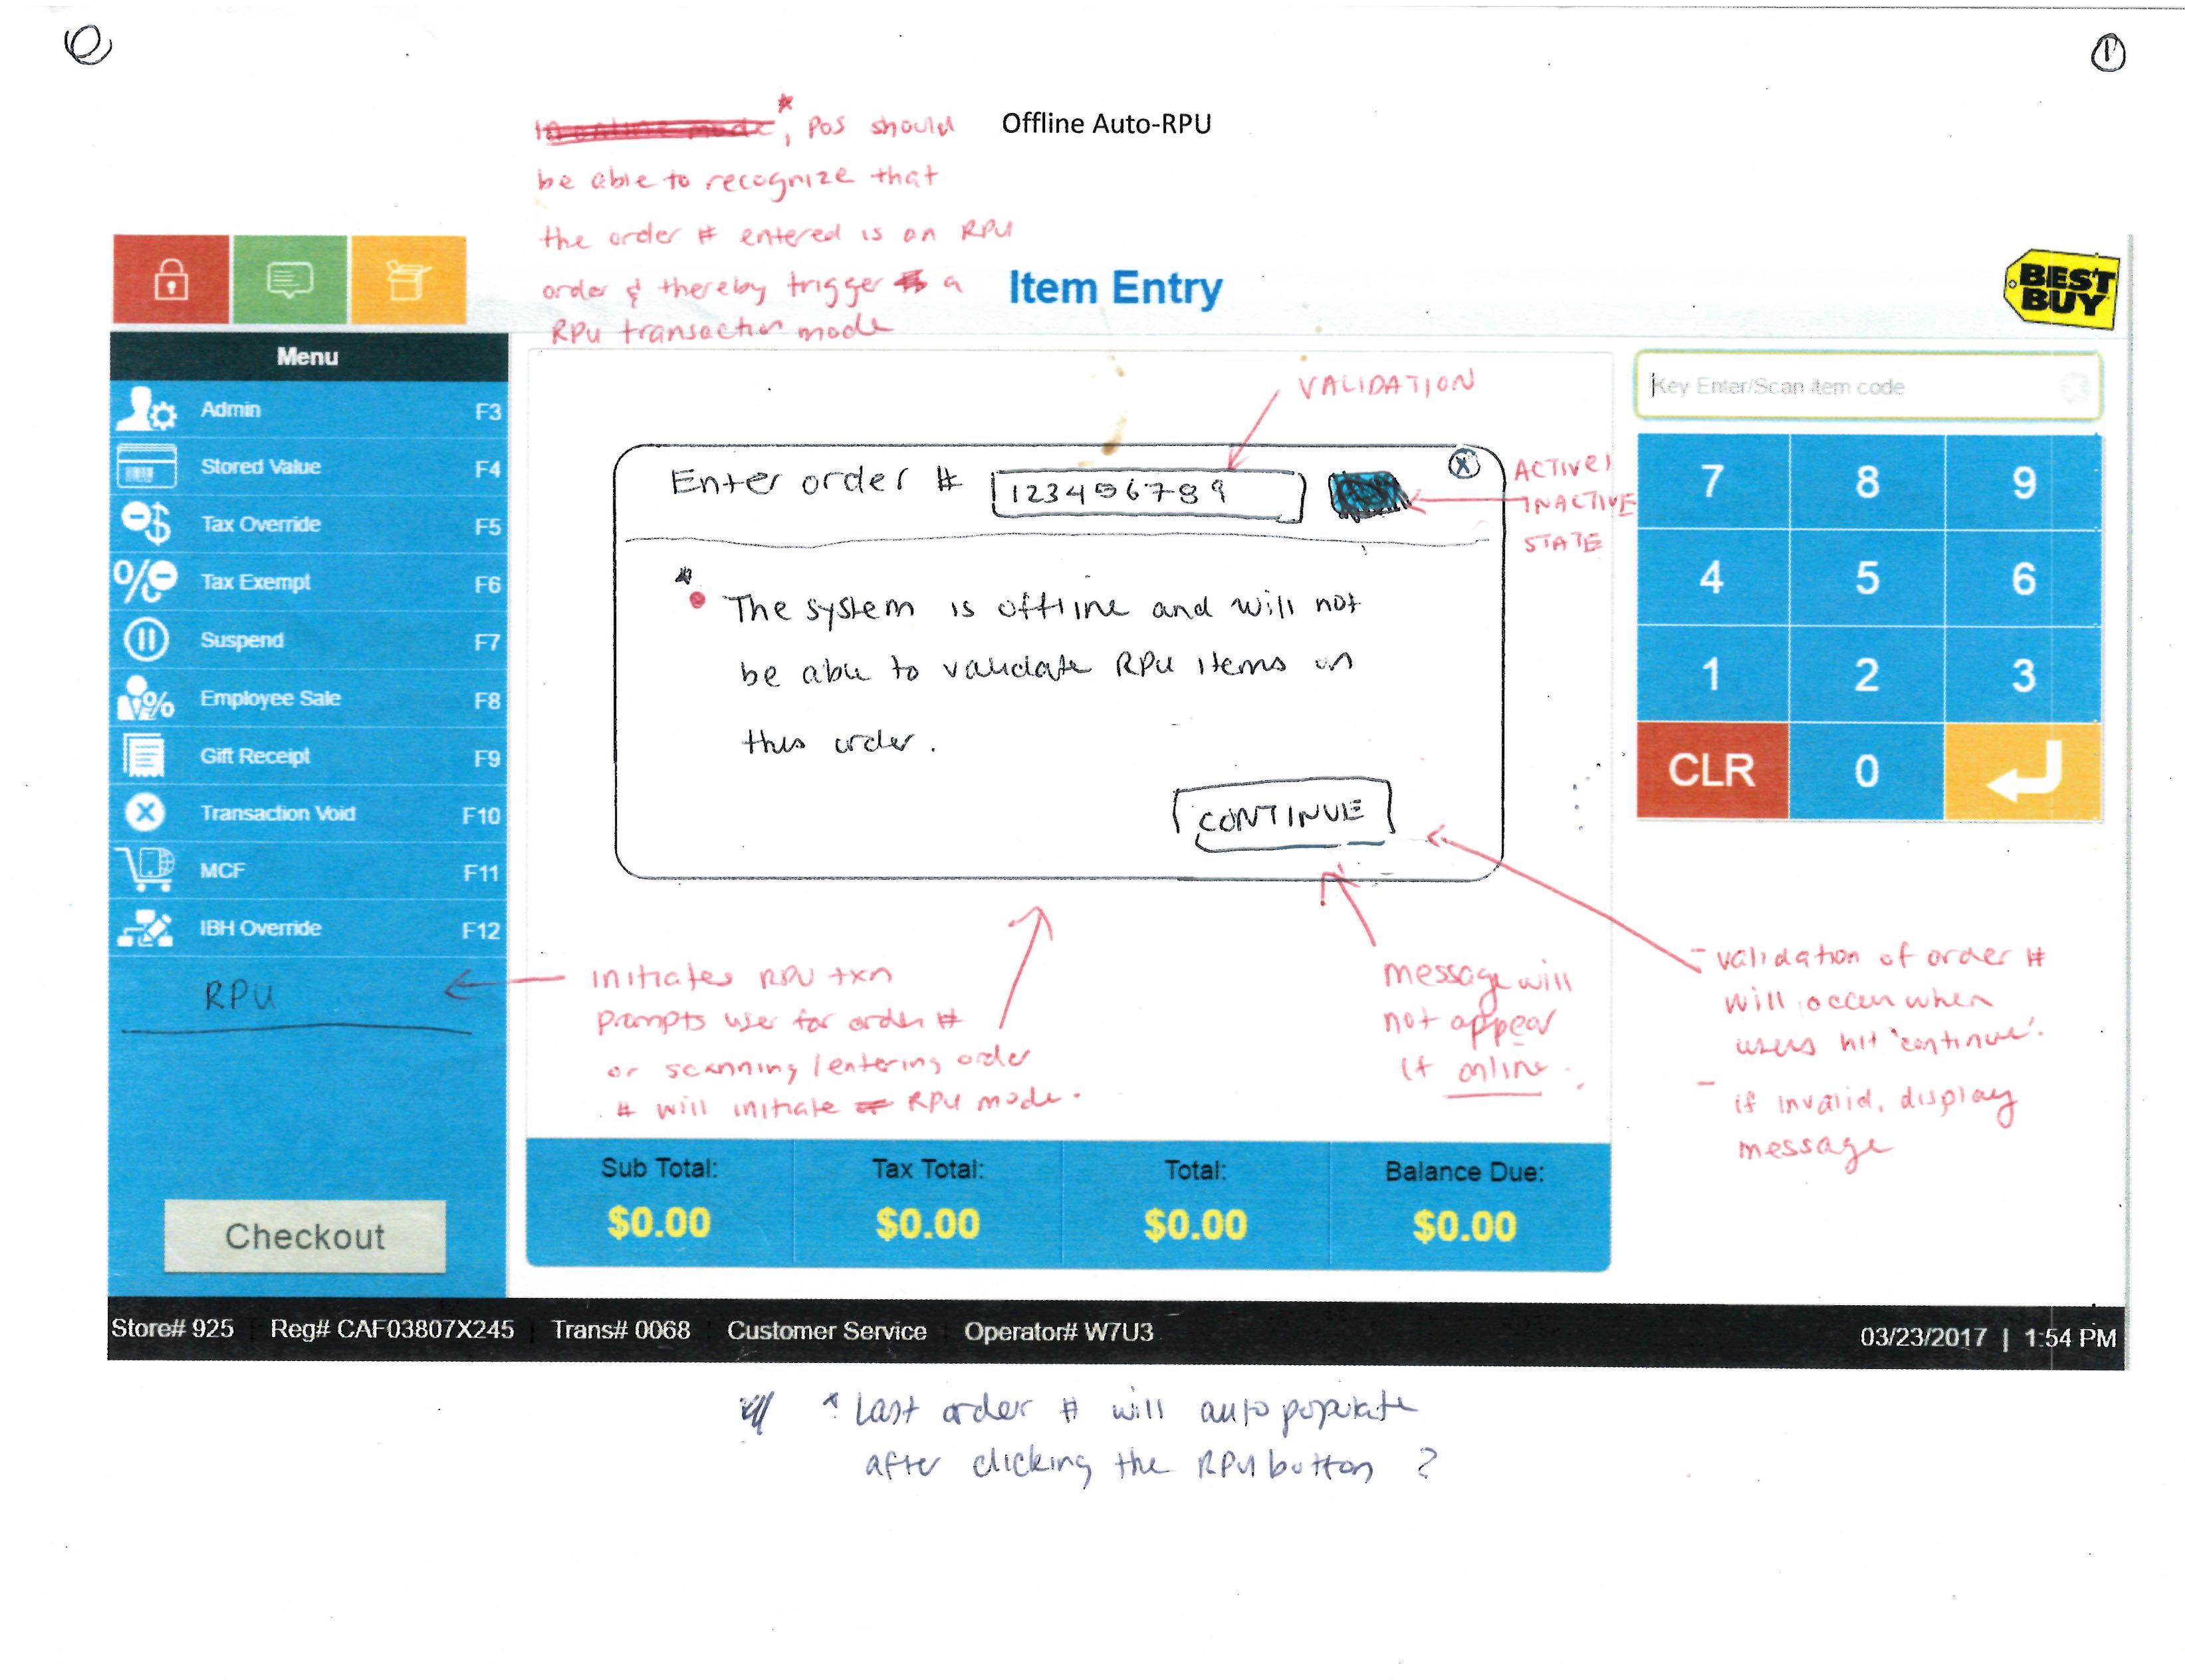 1
Offline Auto-RPU
In online mode*, POS should
be able to recognize that
the order # entered is an RPU
order & thereby trigger a
RPU transaction mode
Item Entry
BEST
BUY
Menu
Admin F3
Stored Value F4
Tax Override F5
Tax Exempt F6
Suspend F7
Employee Sale F8
Gift Receipt F9
Transaction Void F10
MCF F11
IBH Override F12
RPU
Checkout
VALIDATION
Enter order # 123456789 X
ACTIVE/
INACTIVE
STATE
* The system is offline and will not
be able to validate RPU items in
this order.
CONTINUE
initiates RPU txn
prompts user for order #
or scanning/entering order
# will initiate RPU mode.
message will
not appear
if online.
- validation of order #
will occur when
users hit 'continue'.
- if invalid, display
message
Key Enter/Scan item code
7 8 9
4 5 6
1 2 3
CLR 0
Sub Total: Tax Total: Total: Balance Due:
$0.00 $0.00 $0.00 $0.00
Store# 925 Reg# CAF03807X245 Trans# 0068 Customer Service Operator# W7U3 03/23/2017 | 1:54 PM
* Last order # will auto populate
after clicking the RPU button ?